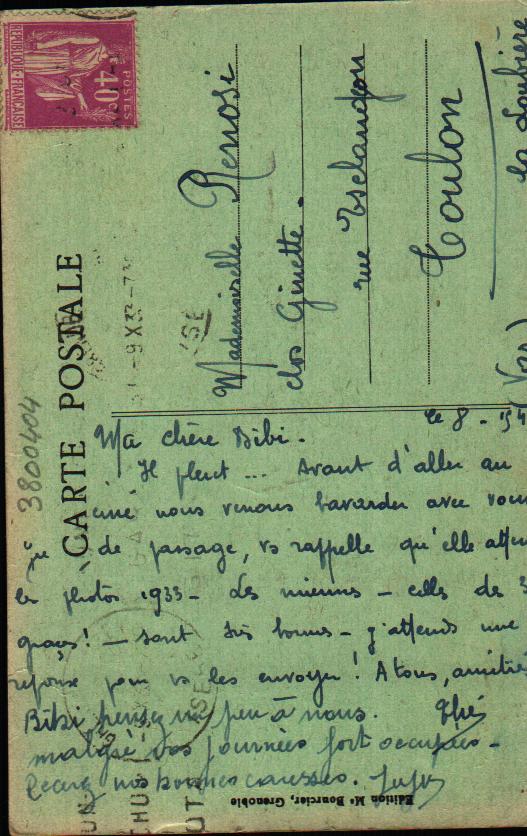 CARTE POSTALE
POSTES
40c
REPUBLIQUE FRANÇAISE
3800404
9 X 33
Mademoiselle Renosi
clos Ginette.
rue Esclangon
Toulon
la Loubière
(Var)
le 8 -
Ma chère Bibi.
Il pleut ... Avant d'aller au
ciné nous venons bavarder avec vous
de passage, vs rappelle qu'elle atten
les photos 1933 - Les miennes - celles des 3
graces! - sont très bonnes - j'attends une
reponse pour vs les envoyer! A tous, amitiés
Bibi pensez un peu à nous.
malgré vos journées fort occupées -
Recevez nos bonnes caresses.
Edition Mº Bourcier, Grenoble